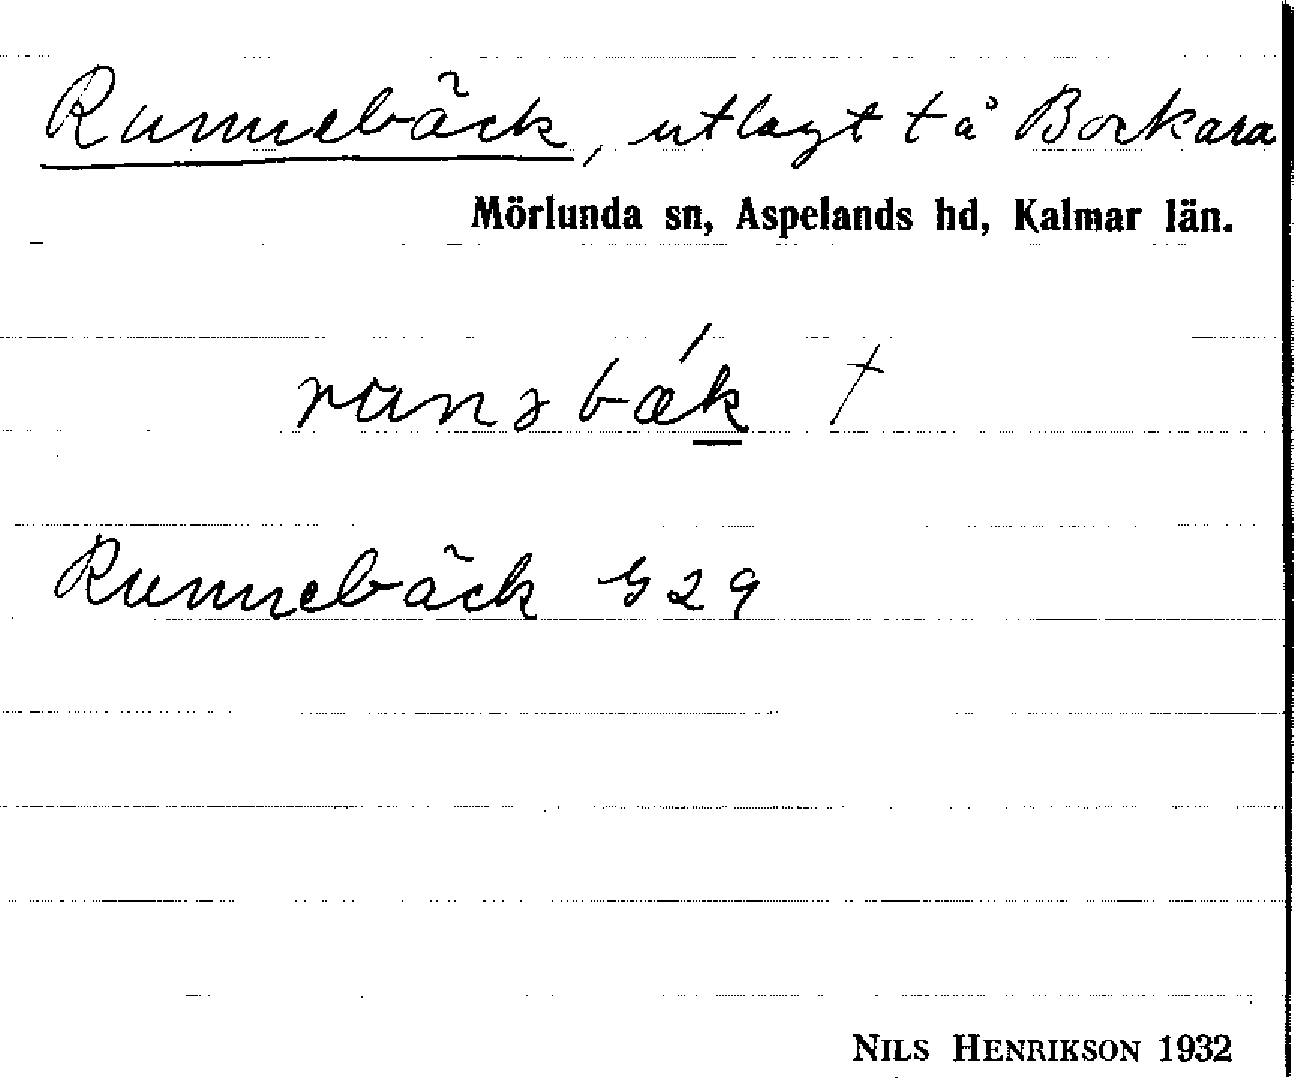 Runnebäck, utlagt tå Bockara
Mörlunda sn, Aspelands hd, Kalmar län.
Runnebäck G29
NILS HENRIKSON 1932